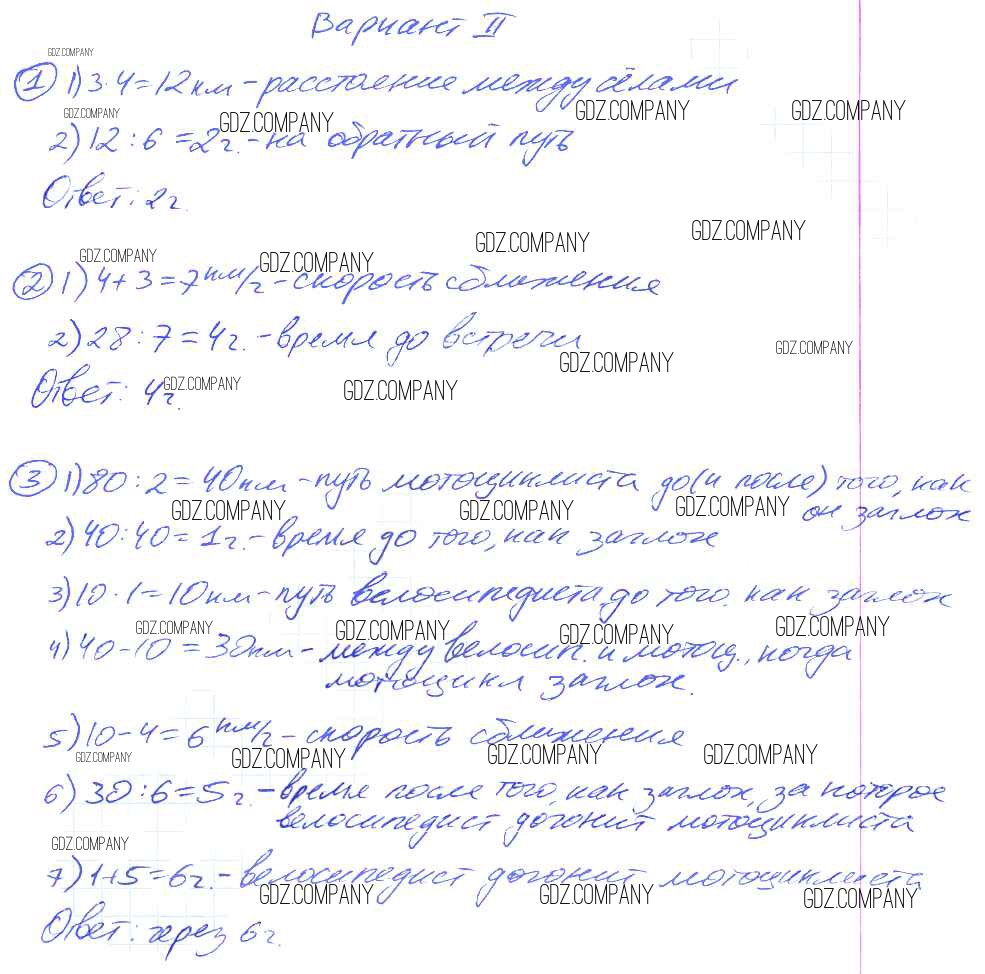 Вариант II
GDZ.COMPANY
1 1) 3·4=12км - расстояние между сёлами
GDZ.COMPANY GDZ.COMPANY GDZ.COMPANY GDZ.COMPANY
2) 12:6=2ч. - на обратный путь
Ответ: 2ч.
GDZ.COMPANY GDZ.COMPANY GDZ.COMPANY GDZ.COMPANY
2 1) 4+3=7км/ч - скорость сближения
2) 28:7=4ч. - время до встречи
GDZ.COMPANY GDZ.COMPANY
Ответ: 4ч.
GDZ.COMPANY GDZ.COMPANY
3 1) 80:2=40км - путь мотоциклиста до (и после) того, как
он заглох
GDZ.COMPANY GDZ.COMPANY GDZ.COMPANY
2) 40:40=1ч. - время до того, как заглох
3) 10·1=10км - путь велосипедиста до того. как заглох
GDZ.COMPANY GDZ.COMPANY GDZ.COMPANY GDZ.COMPANY
4) 40-10=30км - между велосип. и мотоц., когда
мотоцикл заглох.
5) 10-4=6км/ч - скорость сближения
GDZ.COMPANY GDZ.COMPANY GDZ.COMPANY GDZ.COMPANY
6) 30:6=5ч. - время после того, как заглох, за которое
велосипедист догонит мотоциклиста
GDZ.COMPANY
7) 1+5=6ч. - велосипедист догонит мотоциклиста
GDZ.COMPANY GDZ.COMPANY GDZ.COMPANY
Ответ: через 6ч.